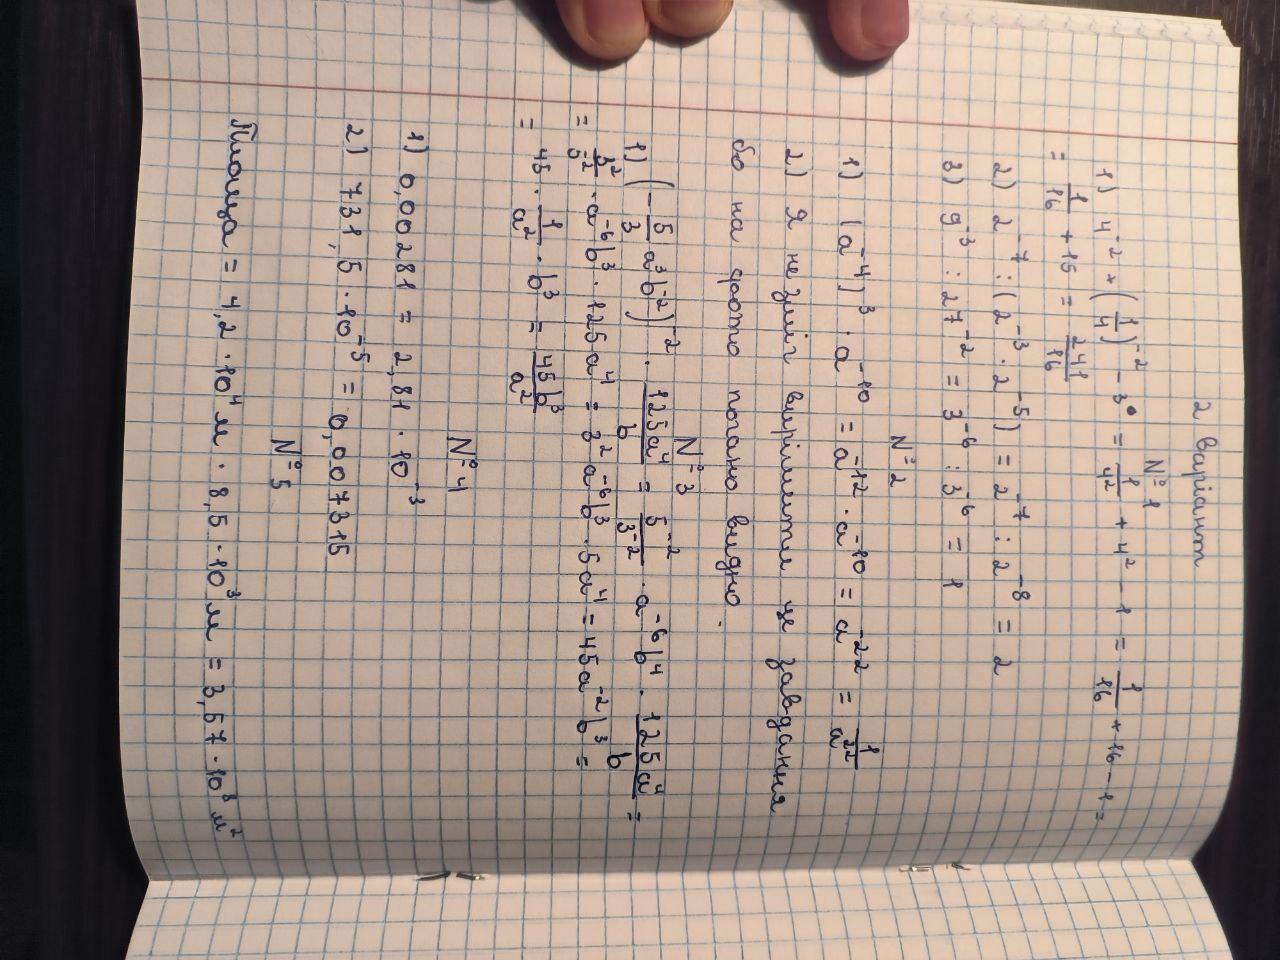 2 варіант
№1
1) 4⁻² + (1/4)⁻² - 3⁰ = 1/4² + 4² - 1 = 1/16 + 16 - 1 =
= 1/16 + 15 = 241/16
2) 2⁻⁷ : (2⁻³ · 2⁻⁵) = 2⁻⁷ : 2⁻⁸ = 2
3) 9⁻³ : 27⁻² = 3⁻⁶ : 3⁻⁶ = 1
№2
1) (a⁻⁴)³ · a⁻¹⁰ = a⁻¹² · a⁻¹⁰ = a⁻²² = 1/a²²
2) Я не зміг вирішити це завдання
бо на фото погано видно.
№3
1) (-5/3 a³b⁻²)⁻² · 125a⁴/b = 5⁻²/3⁻² · a⁻⁶b⁴ · 125a⁴/b =
= 3²/5⁻² · a⁻⁶b³ · 125a⁴ = 3²a⁻⁶b³ · 5a⁴ = 45a⁻²b³ =
= 45 · 1/a² · b³ = 45b³/a²
№4
1) 0,00281 = 2,81 · 10⁻³
2) 731,5 · 10⁻⁵ = 0,007315
№5
Площа = 4,2 · 10⁴ м · 8,5 · 10³ м = 3,57 · 10⁸ м²